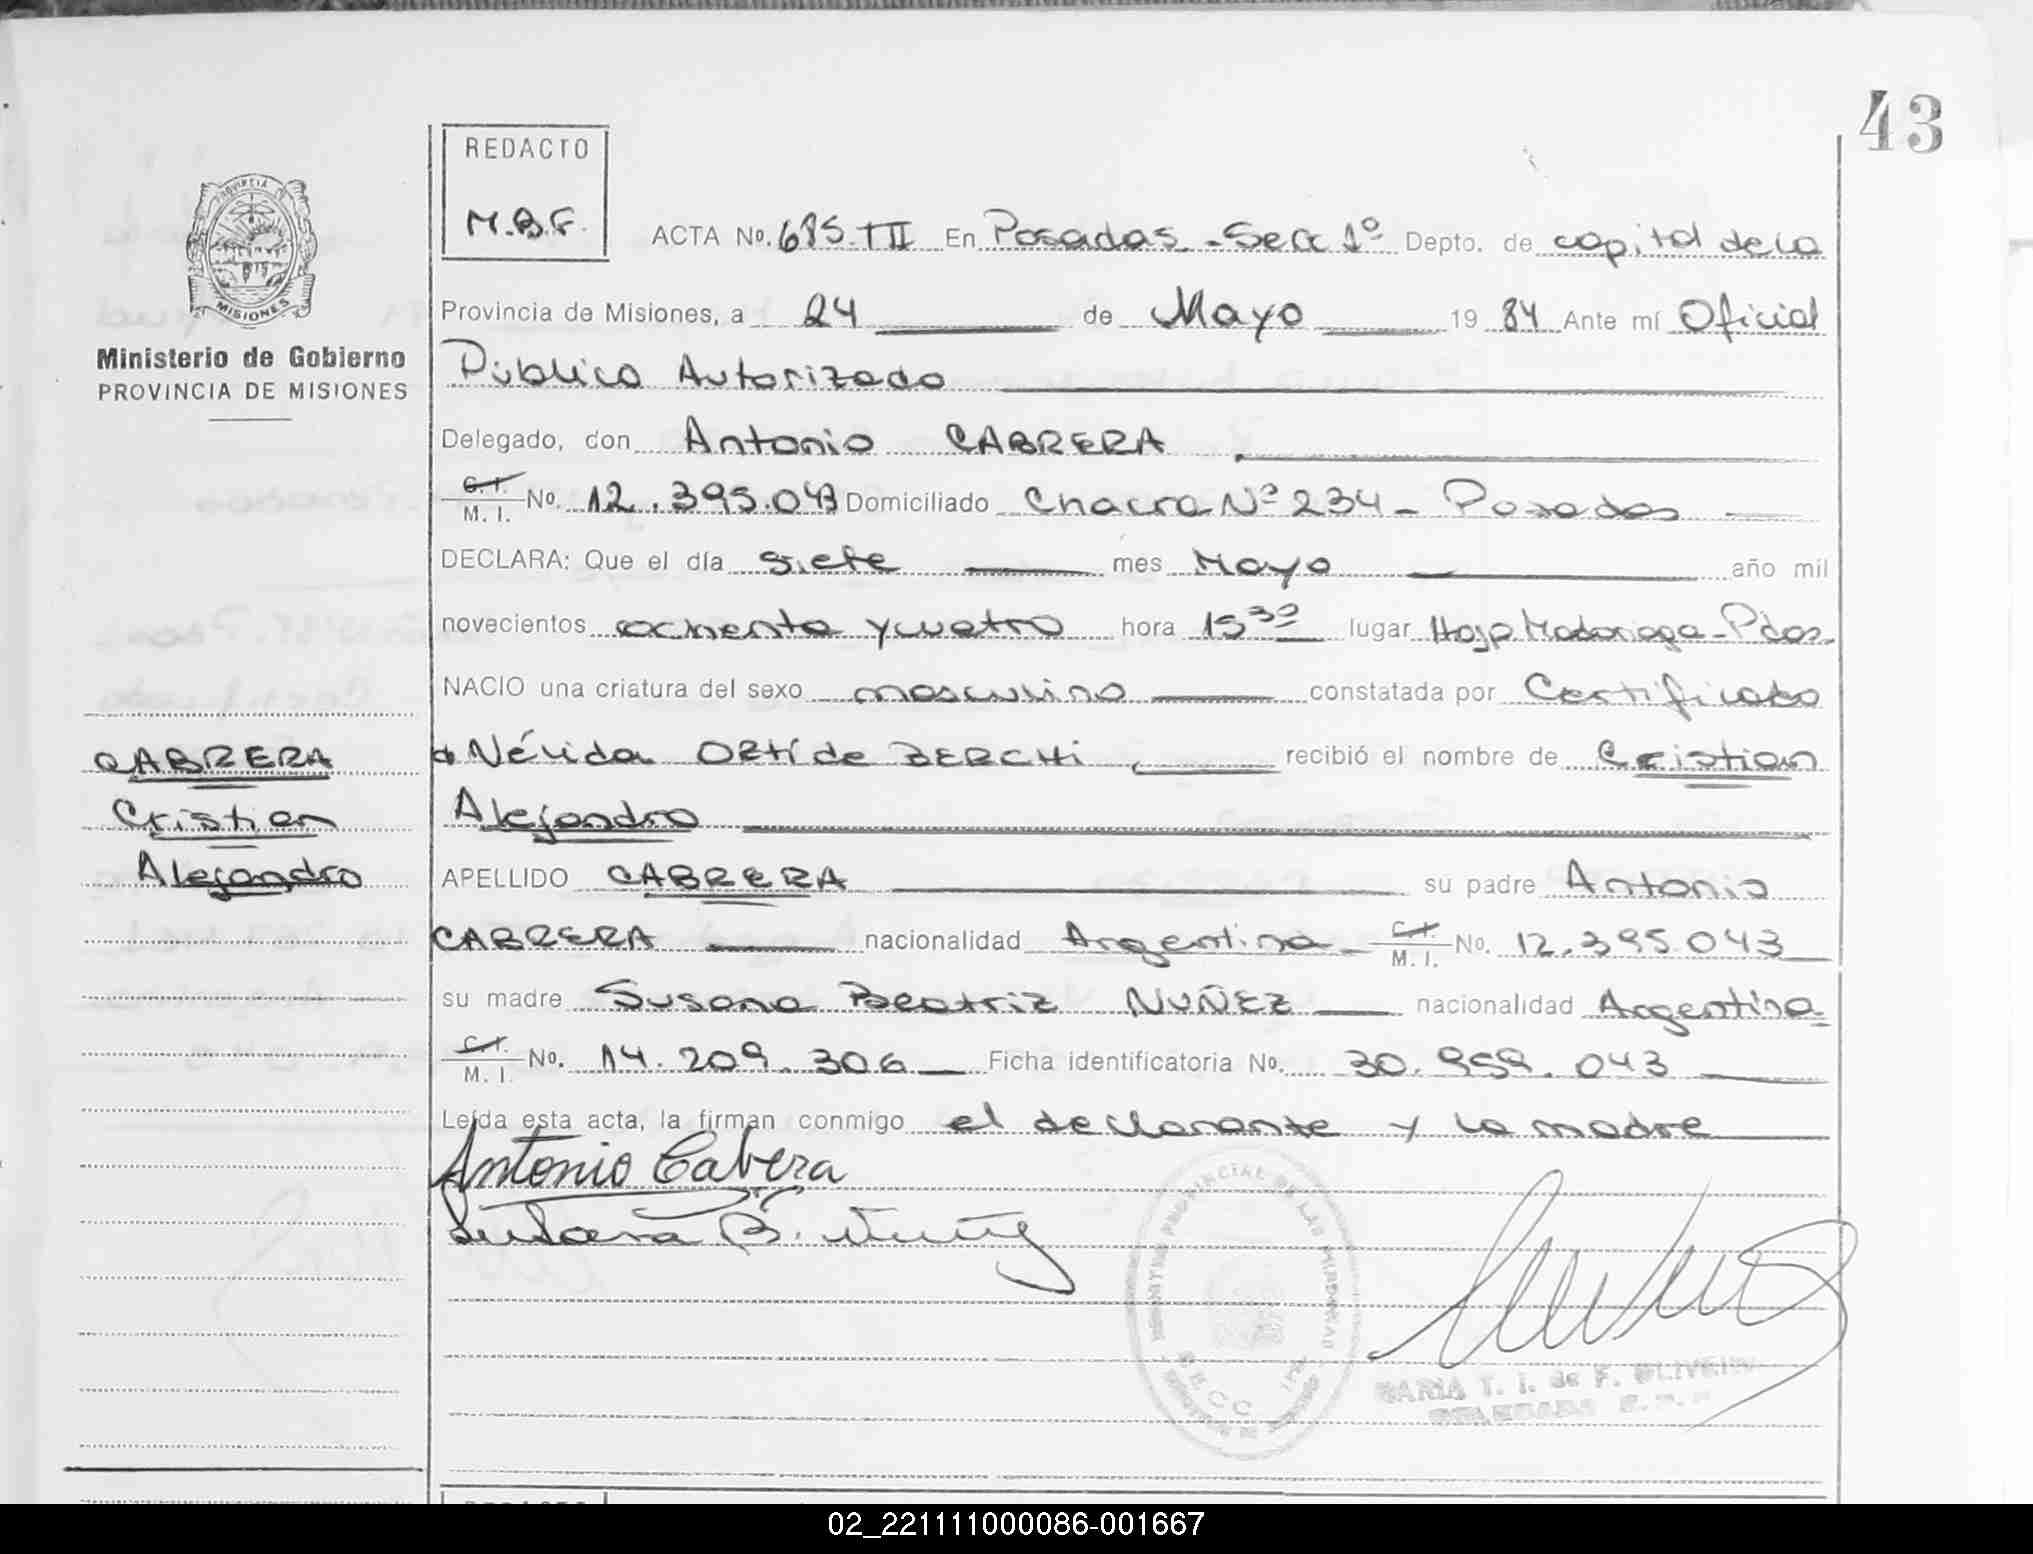 43
REDACTO
M.B.F.
PROVINCIA DE
MISIONES
Ministerio de Gobierno
PROVINCIA DE MISIONES
CABRERA
Cristian
Alejandro
ACTA No. 685-TII En Posadas - Secc 1º Depto. de capital de la
Provincia de Misiones, a 24 de Mayo 19 84 Ante mí Oficial
Público Autorizado
Delegado, don Antonio CABRERA
C.I. / M. I. No. 12.395.043 Domiciliado Chacra Nº 234 - Posadas
DECLARA: Que el día siete mes Mayo año mil
novecientos ochenta y cuatro hora 15³⁰ lugar Hosp. Madariaga - Pdas.
NACIO una criatura del sexo masculino constatada por Certificado
d Nélida ORTÍ de BERCHI recibió el nombre de Cristian
Alejandro
APELLIDO CABRERA su padre Antonio
CABRERA nacionalidad Argentina C.I. / M. I. No. 12.395.043
su madre Susana Beatriz NUÑEZ nacionalidad Argentina
C.I. / M. I. No. 14.209.306 Ficha identificatoria No. 30.959.043
Leída esta acta, la firman conmigo el declarante y la madre
Antonio Cabrera
Susana B. Nuñez
REGISTRO PROVINCIAL DE LAS PERSONAS
MARIA T. I. de F. OLIVEIRA
DELEGADA
02_221111000086-001667